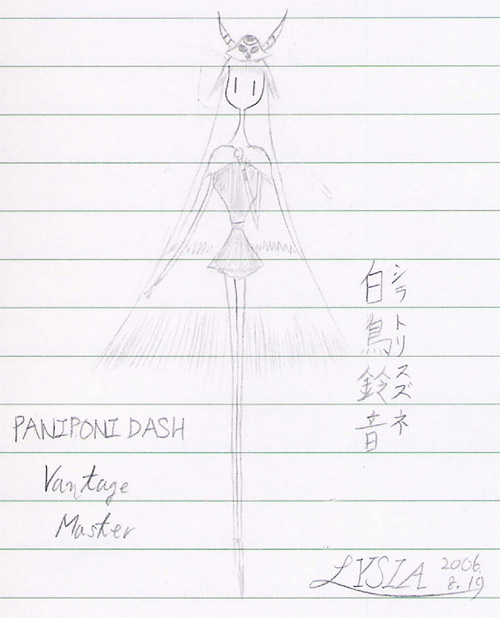 白鳥鈴音
シラトリスズネ
PANIPONI DASH
Vantage
Master
LYSIA 2006.
8.19